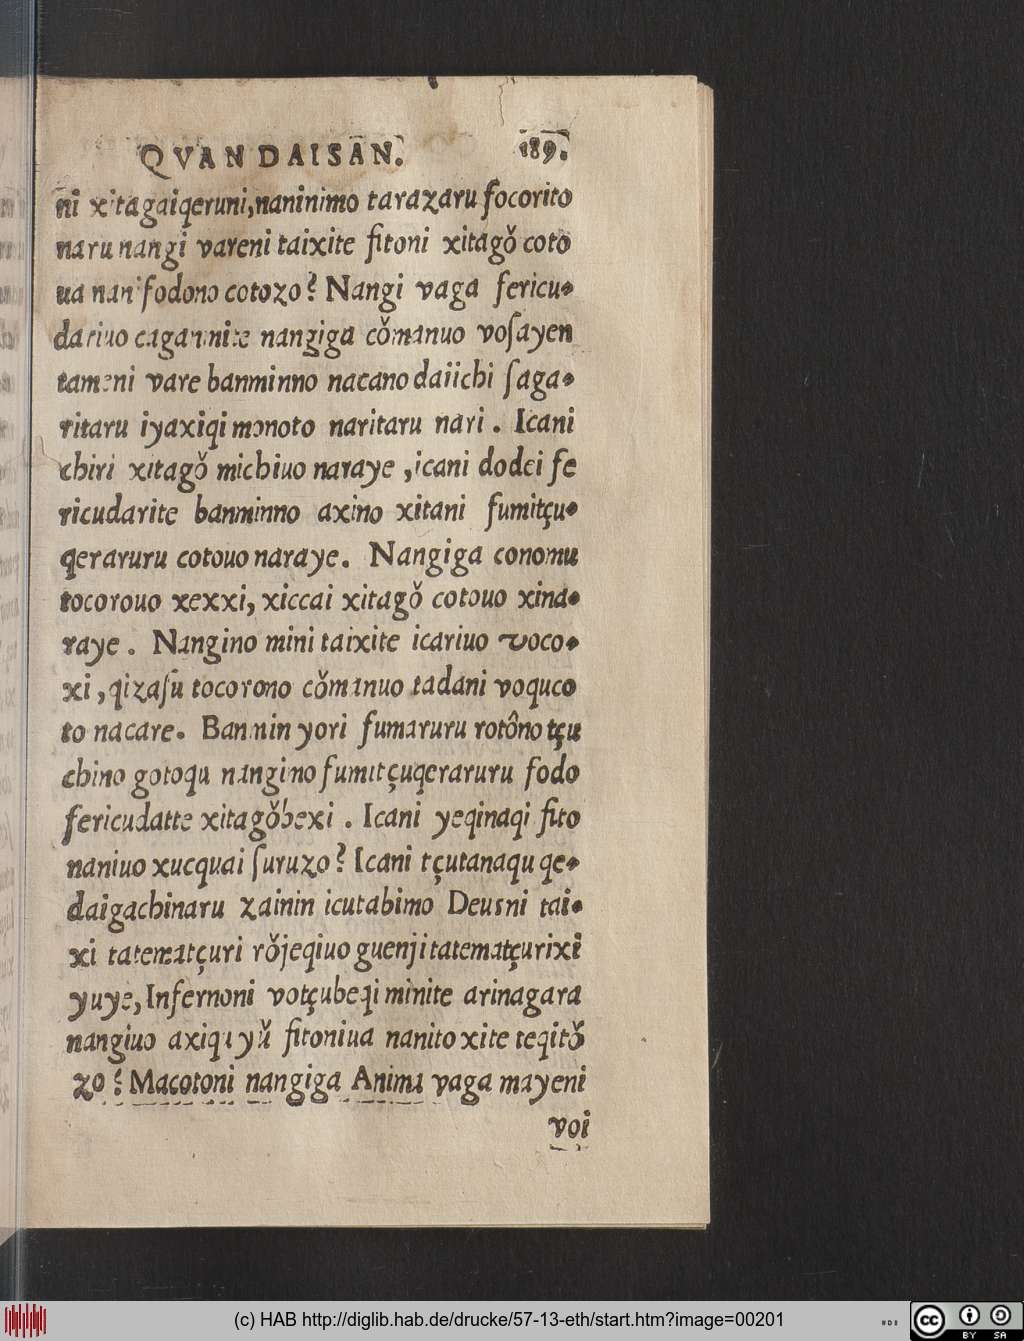 QVAN DAISAN. 189.
ni xitagaiqeruni, naninimo tarazaru focorito
naru nangi vareni taixite fitoni xitagǒ coto
ua nan fodono cotozo? Nangi vaga fericu-
dariuo cagamite nangiga cǒmanuo voſayen
tameni vare banminno nacano daiichi ſaga-
ritaru iyaxiqi monoto naritaru nari. Icani
chiri xitagǒ michiuo naraye, icani dodei fe
ricudarite banminno axino xitani fumitçu-
qeraruru cotouo naraye. Nangiga conomu
tocorouo xexxi, xiccai xitagǒ cotouo xina-
raye. Nangino mini taixite icariuo voco-
xi, qizaſu tocorono cǒmanuo tadani voquco
to nacare. Banmin yori fumaruru rotôno tçu
chino gotoqu nangino fumitçuqeraruru fodo
fericudatte xitagǒbexi. Icani yeqinaqi fito
naniuo xucquai ſuruzo? Icani tçutanaqu qe-
daigachinaru zainin icutabimo Deusni tai-
xi tatematçuri rǒjeqiuo guenji tatematçurixi
yuye, Infernoni votçubeqi minite arinagara
nangiuo axiqu yǔ fitoniua nanito xite teqitǒ
zo? Macotoni nangiga Anima vaga mayeni
voi
(c) HAB http://diglib.hab.de/drucke/57-13-eth/start.htm?image=00201
cc BY SA